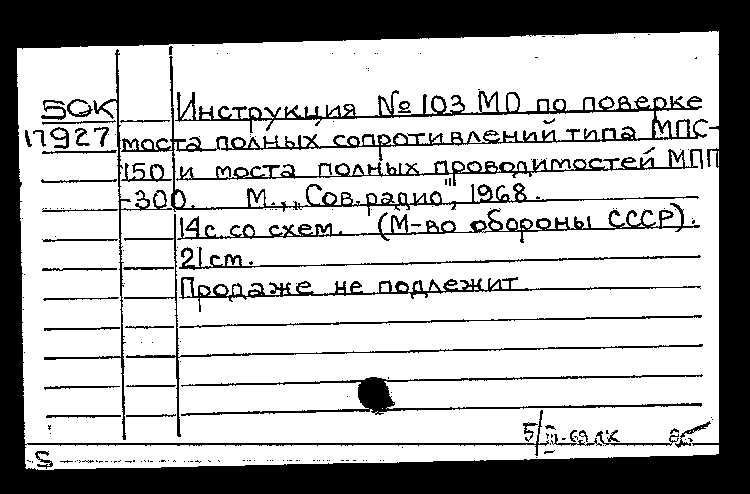 БОК Инструкция № 103 МО по поверке
17927 моста полных сопротивлений типа МПС-
150 и моста полных проводимостей МПП
-300. М., „Сов. радио", 1968.
14с. со схем. (М-во обороны СССР).
21см.
Продаже не подлежит.
5/III-69 ЛК
S